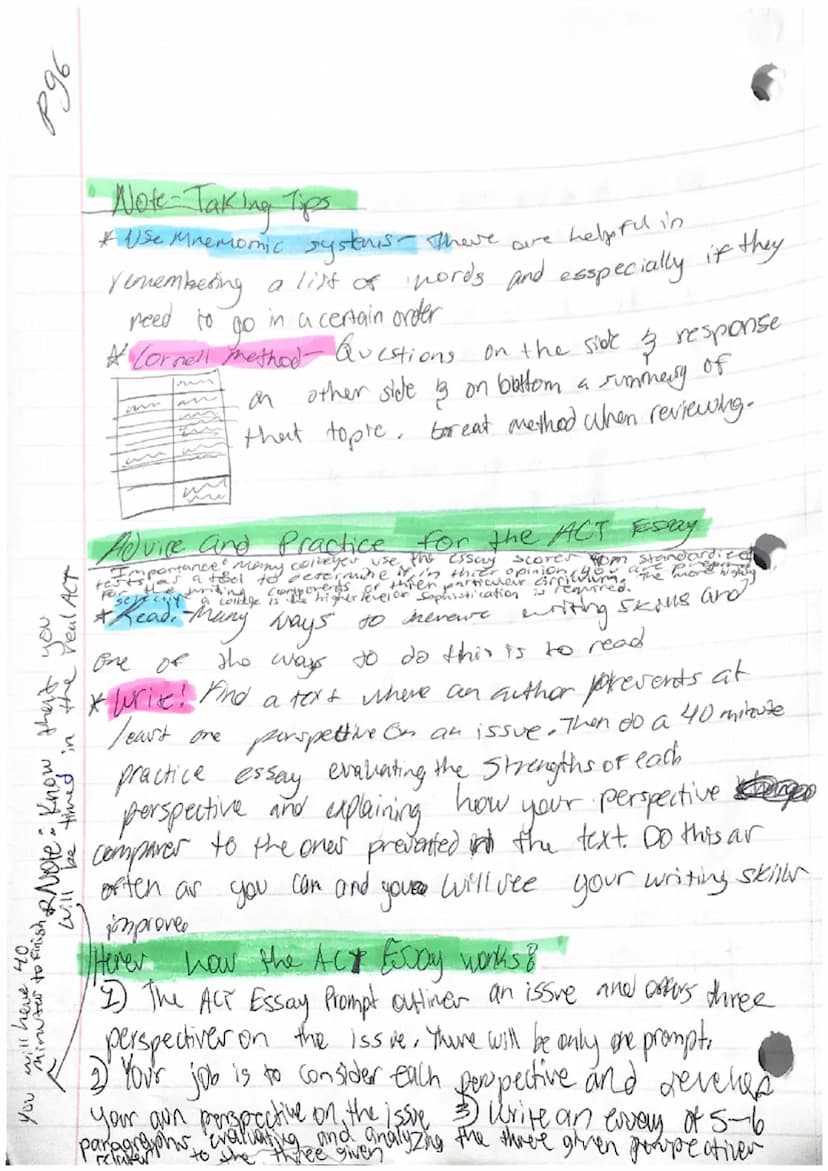 P96
Note-Taking Tips
* Use Mnemomic systems- These are helpful in
remembering a list of words and esspecially if they
need to go in a certain order
* Cornell Method- Questions on the side & response
on other side & on bottom a summary of
that topic. Great method when reviewing.
Advice and Practice for the ACT Essay
Importance: Many colleges use the essay scores from standardized
tests as a tool to determine if in thier opinion, you are prepared
for the writing components of their particular curriculum. The more highly
selective a college is the higher level of sophistication is required.
* Read.- Many ways to increase writing skills and
one of the ways to do this is to read
* Write! Find a text where an author presents at
least one perspective on an issue. Then do a 40 minute
practice essay evaluating the strengths of each
perspective and explaining how your perspective
compares to the ones presented in the text. Do this as
often as you can and you will see your writing skills
improve
Heres how the ACT Essay works:
1) The ACT Essay Prompt outlines an issue and offers three
perspectives on the issue. There will be only one prompt.
2) Your job is to consider each perspective and develop
your own perspective on the issue 3) Write an essay of 5-6
paragraphs, evaluating and analyzing the three given perspectives
relates to the three given
* Note: Know that you
will be timed in the real ACT
You will have 40
minutes to finish